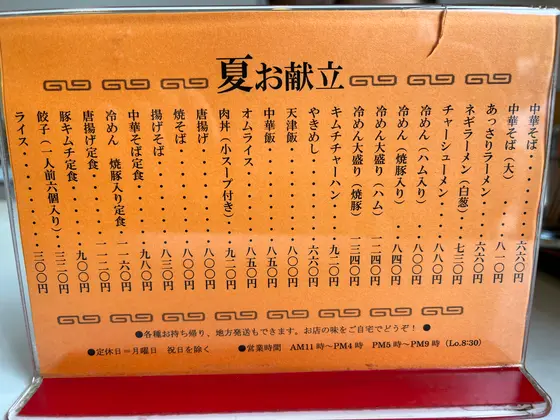 夏お献立
中華そば・・・・・・・・六六〇円
中華そば(大)・・・・・・八一〇円
あっさりラーメン・・・・六六〇円
ネギラーメン(白葱)・・・七三〇円
チャーシューメン・・・・八八〇円
冷めん(ハム入り)・・・・八〇〇円
冷めん(焼豚入り)・・・・八四〇円
冷めん大盛り(ハム)・・一二四〇円
冷めん大盛り(焼豚)・・一三四〇円
キムチチャーハン・・・・九二〇円
やきめし・・・・・・・・六六〇円
天津飯・・・・・・・・・八〇〇円
中華飯・・・・・・・・・八五〇円
オムライス・・・・・・・八五〇円
肉丼(小スープ付き)・・・九二〇円
唐揚げ・・・・・・・・・八〇〇円
焼そば・・・・・・・・・八〇〇円
揚げそば・・・・・・・・八三〇円
中華そば定食・・・・・・九八〇円
冷めん 焼豚入り定食 一一六〇円
唐揚げ定食・・・・・・一一二〇円
豚キムチ定食・・・・・・九〇〇円
餃子(一人前六個入り)・・三三〇円
ライス・・・・・・・・・三〇〇円
●各種お持ち帰り、地方発送もできます。お店の味をご自宅でどうぞ!●
●定休日=月曜日 祝日を除く ●営業時間 AM11時〜PM4時 PM5時〜PM9時(Lo.8:30)